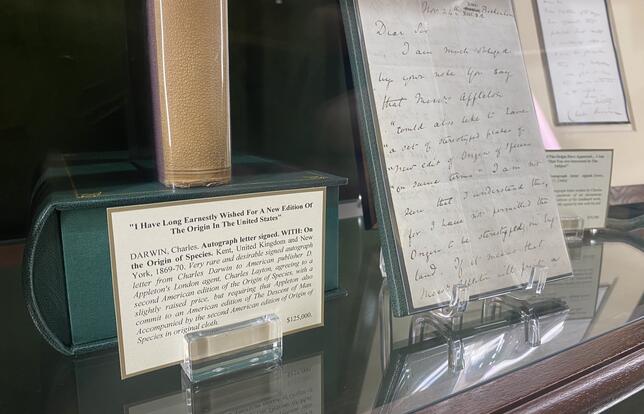 "I Have Long Earnestly Wished For A New Edition Of
The Origin In The United States"
DARWIN, Charles. Autograph letter signed. WITH: On
the Origin of Species. Kent, United Kingdom and New
York, 1869-70. Very rare and desirable signed autograph
letter from Charles Darwin to American publisher D.
Appleton's London agent, Charles Layton, agreeing to a
second American edition of the Origin of Species, with a
slightly raised price, but requiring that Appleton also
commit to an American edition of The Descent of Man.
Accompanied by the second American edition of Origin of
Species in original cloth. $125,000.
Nov. 24th
Dear Sir
I am much obliged
by your note. You say
that Messrs Appleton
"would also like to have
"a set of stereotyped plates of
"new edit of Origin of Species
"on same terms". I am not
sure that I understand this,
for I have not permitted the
Origin to be stereotyped in Eng
land. If it means that
Messrs Appleton will print a